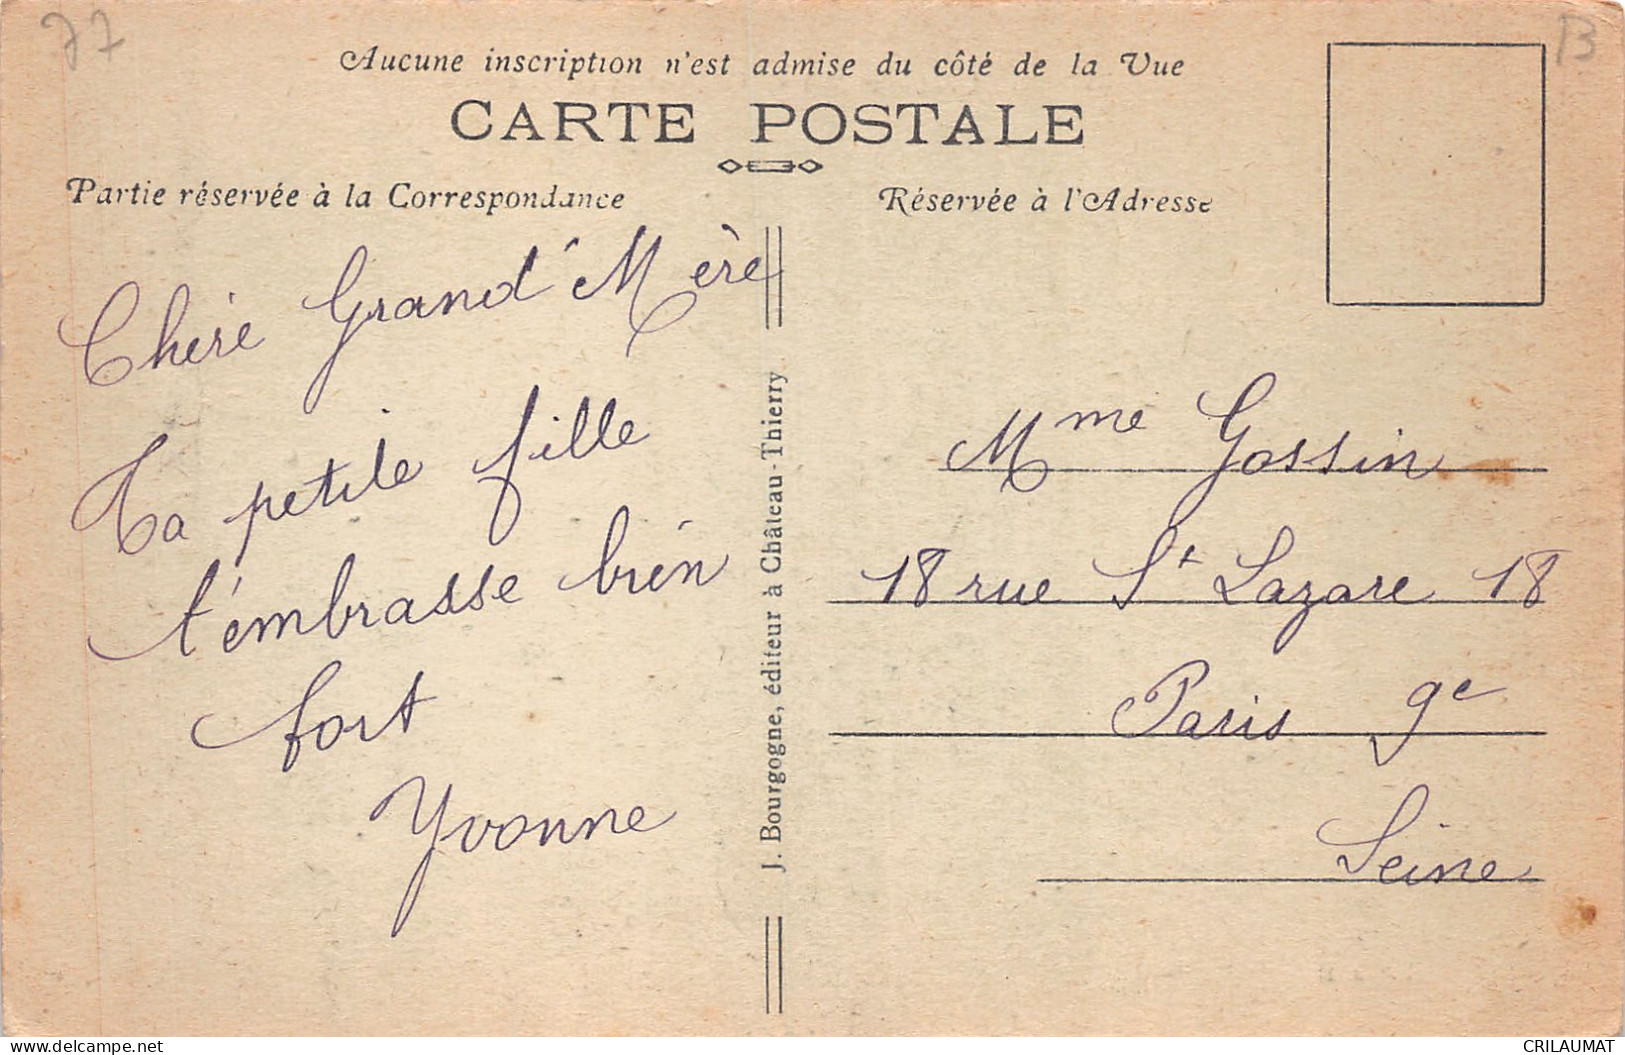 77
B
Aucune inscription n'est admise du côté de la Vue
CARTE POSTALE
Partie réservée à la Correspondance
Réservée à l'Adresse
Chère Grand'Mère
Ta petite fille
t'embrasse bien
fort
Yvonne
J. Bourgogne, éditeur à Château-Thierry
Mme Gossin
18 rue St Lazare 18
Paris 9e
Seine
www.delcampe.net
CRILAUMAT